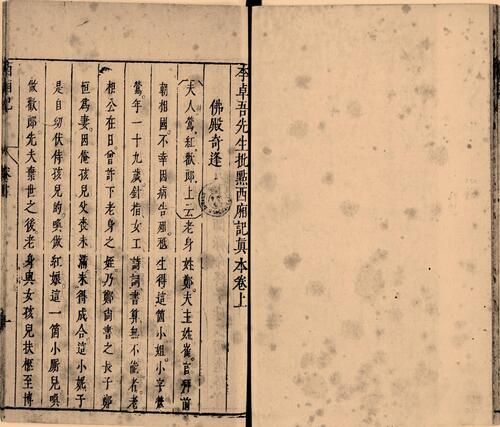 李卓吾先生批點西廂記真本卷上
佛殿奇逢
夫人鶯紅歡郎上云老身姓鄭夫主姓崔官拜前
朝相國不幸因病告殂秪生得這箇小姐小字鶯
鶯年一十九歲針指女工詩詞書算無不能者老
相公在日曾許下老身之姪乃鄭尚書之長子鄭
恒為妻因俺孩兒父喪未滿未得成合這小妮子
是自幼伏侍孩兒的喚做紅娘這一箇小廝兒喚
做歡郎先夫棄世之後老身與女孩兒扶柩至博
西廂記